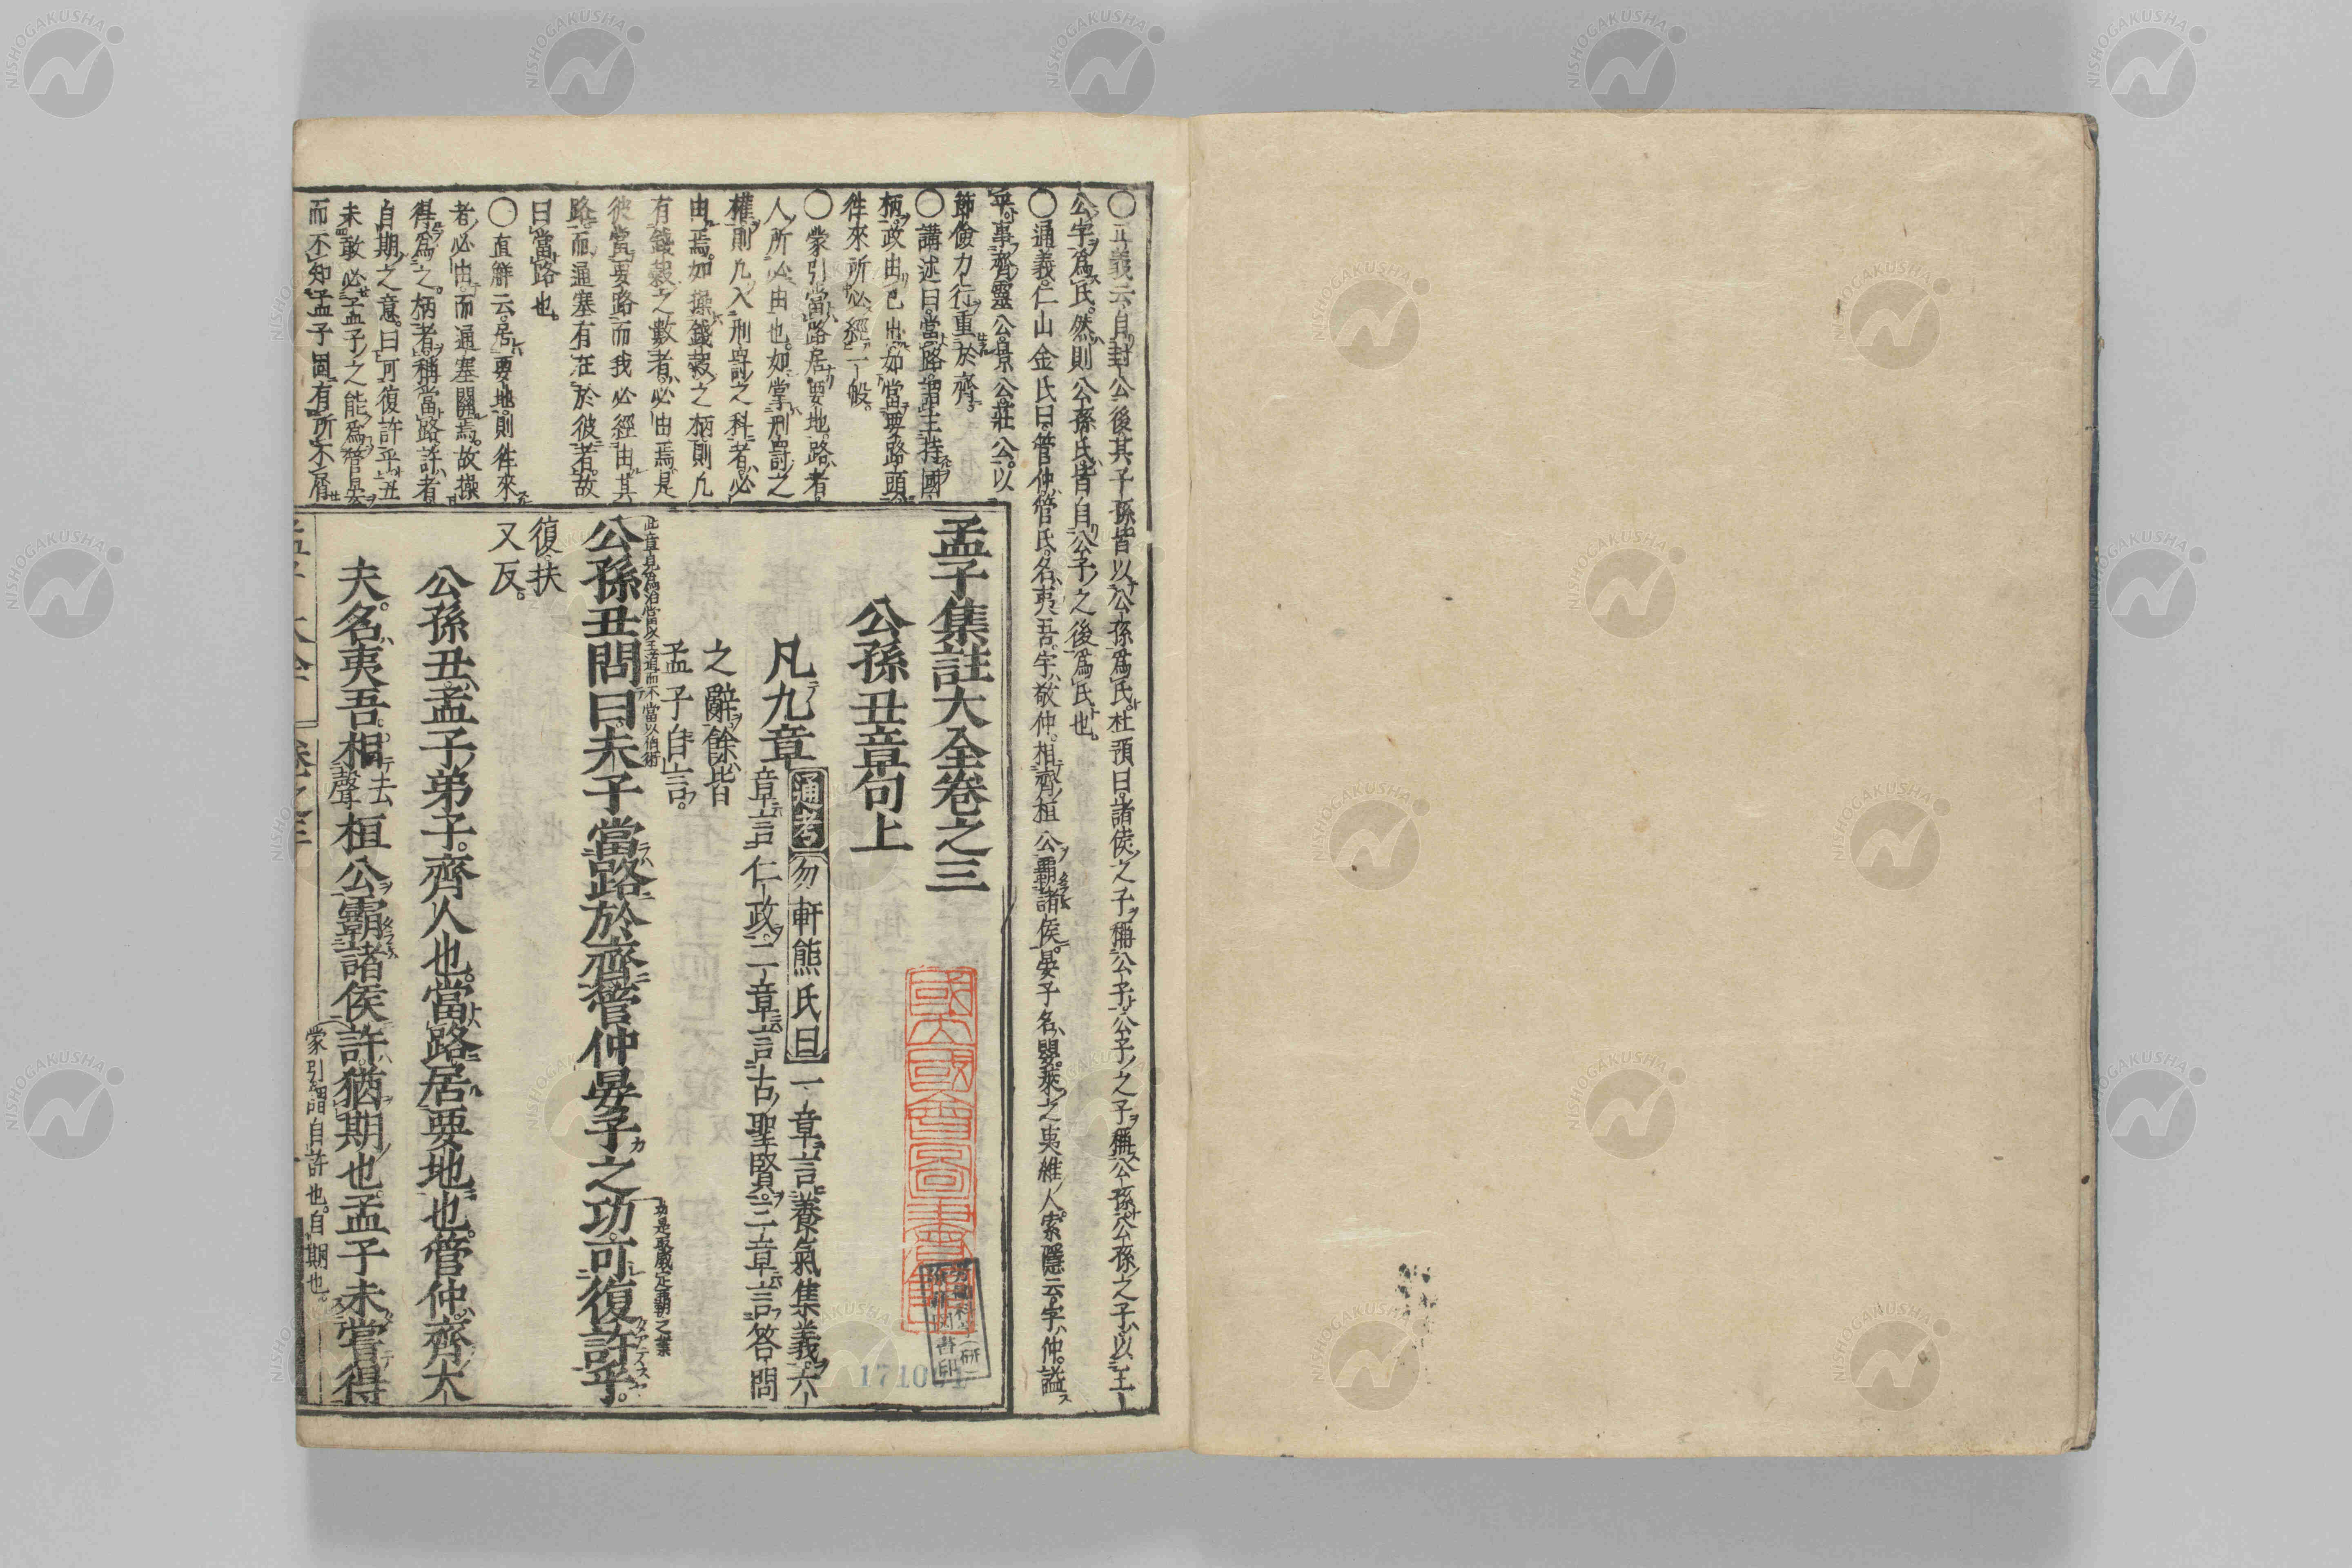 〇正義云自封公後其子孫皆以公孫爲氏杜預曰諸侯之子稱公子公子之子稱公孫公孫之子以王
公字爲氏。然則公孫氏皆自公子之後爲氏也。
〇通義仁山金氏曰。管仲管氏。名夷吾。字敬仲。相齊桓公霸諸侯。晏子名嬰。萊之夷維人。索隱云。字仲。謚
平。事齊靈公景公莊公。以
節儉力行重於齊。
〇講述曰。當路。謂主持國
柄。政由己出。如當要路頭
徃來所必經一般。
〇蒙引當路居要地。路者。
人所必由也。如掌刑罰之
權。則凡入刑罰之科者。必
由焉。如操錢穀之柄則凡
有錢穀之數者。必由焉是
彼當要路而我必經由其
路。而通塞有在於彼者。故
曰當路也。
〇直解云。居要地。則徃來
者必由。而通塞關焉。故操
得爲之。柄者。稱當路。許者
自期之意。曰可復許乎。丑
未敢必孟子之能爲管晏
而不知孟子固有所不屑
孟子集註大全卷之三
公孫丑章句上
凡九章 通考 勿軒熊氏曰 一章言養氣集義。六
章言仁政。二章言古聖賢。三章言答問
之辭餘皆
孟子自言。
此章見爲治當以王道而不當以伯術
公孫丑問曰。夫子當路於齊。管仲晏子之功。可復許乎。
功是取威定霸之業
復。扶
又反。
公孫丑。孟子弟子。齊人也。當路。居要地也。管仲。齊大
夫。名夷吾。相去聲桓公。霸諸侯。許。猶期也。孟子未嘗得
蒙引謂自許也。自期也。
國立國會圖書館
NISHOGAKUSHA